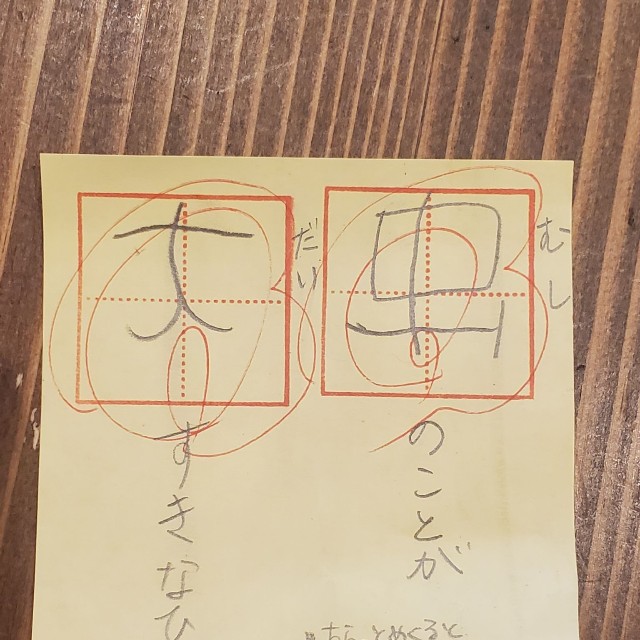 むし
虫のことが
だい
大すきなひ